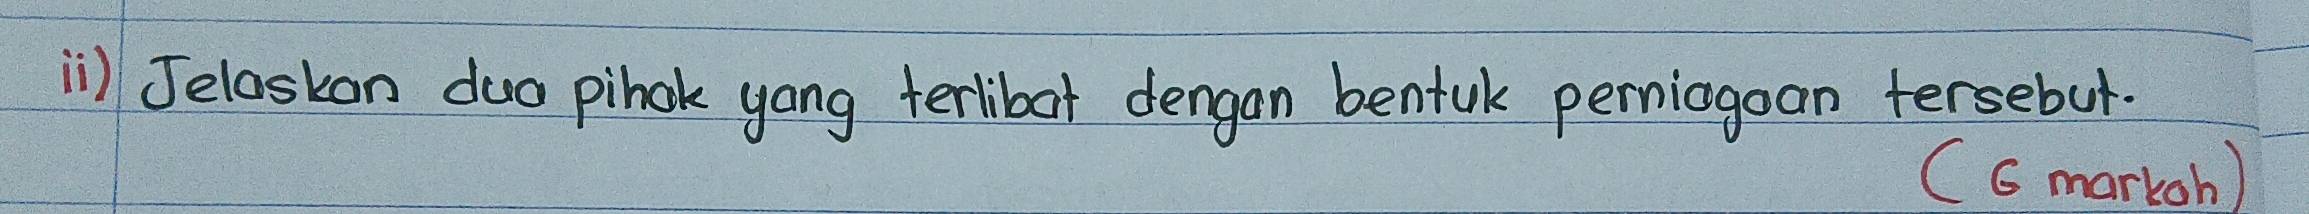 ii) Jelaskan dua pihak yang terlibat dengan bentuk perniagaan tersebut.
(6 markah)